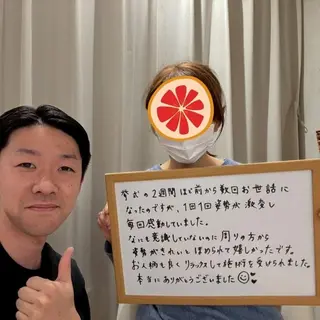 挙式の2週間ほど前から数回お世話に
なったのですが、1回1回姿勢が激変し
毎回感動していました。
なにも意識していないのに周りの方から
姿勢がきれいとほめられて嬉しかったです。
お人柄も良くリラックスして施術を受けられました。
本当にありがとうございました